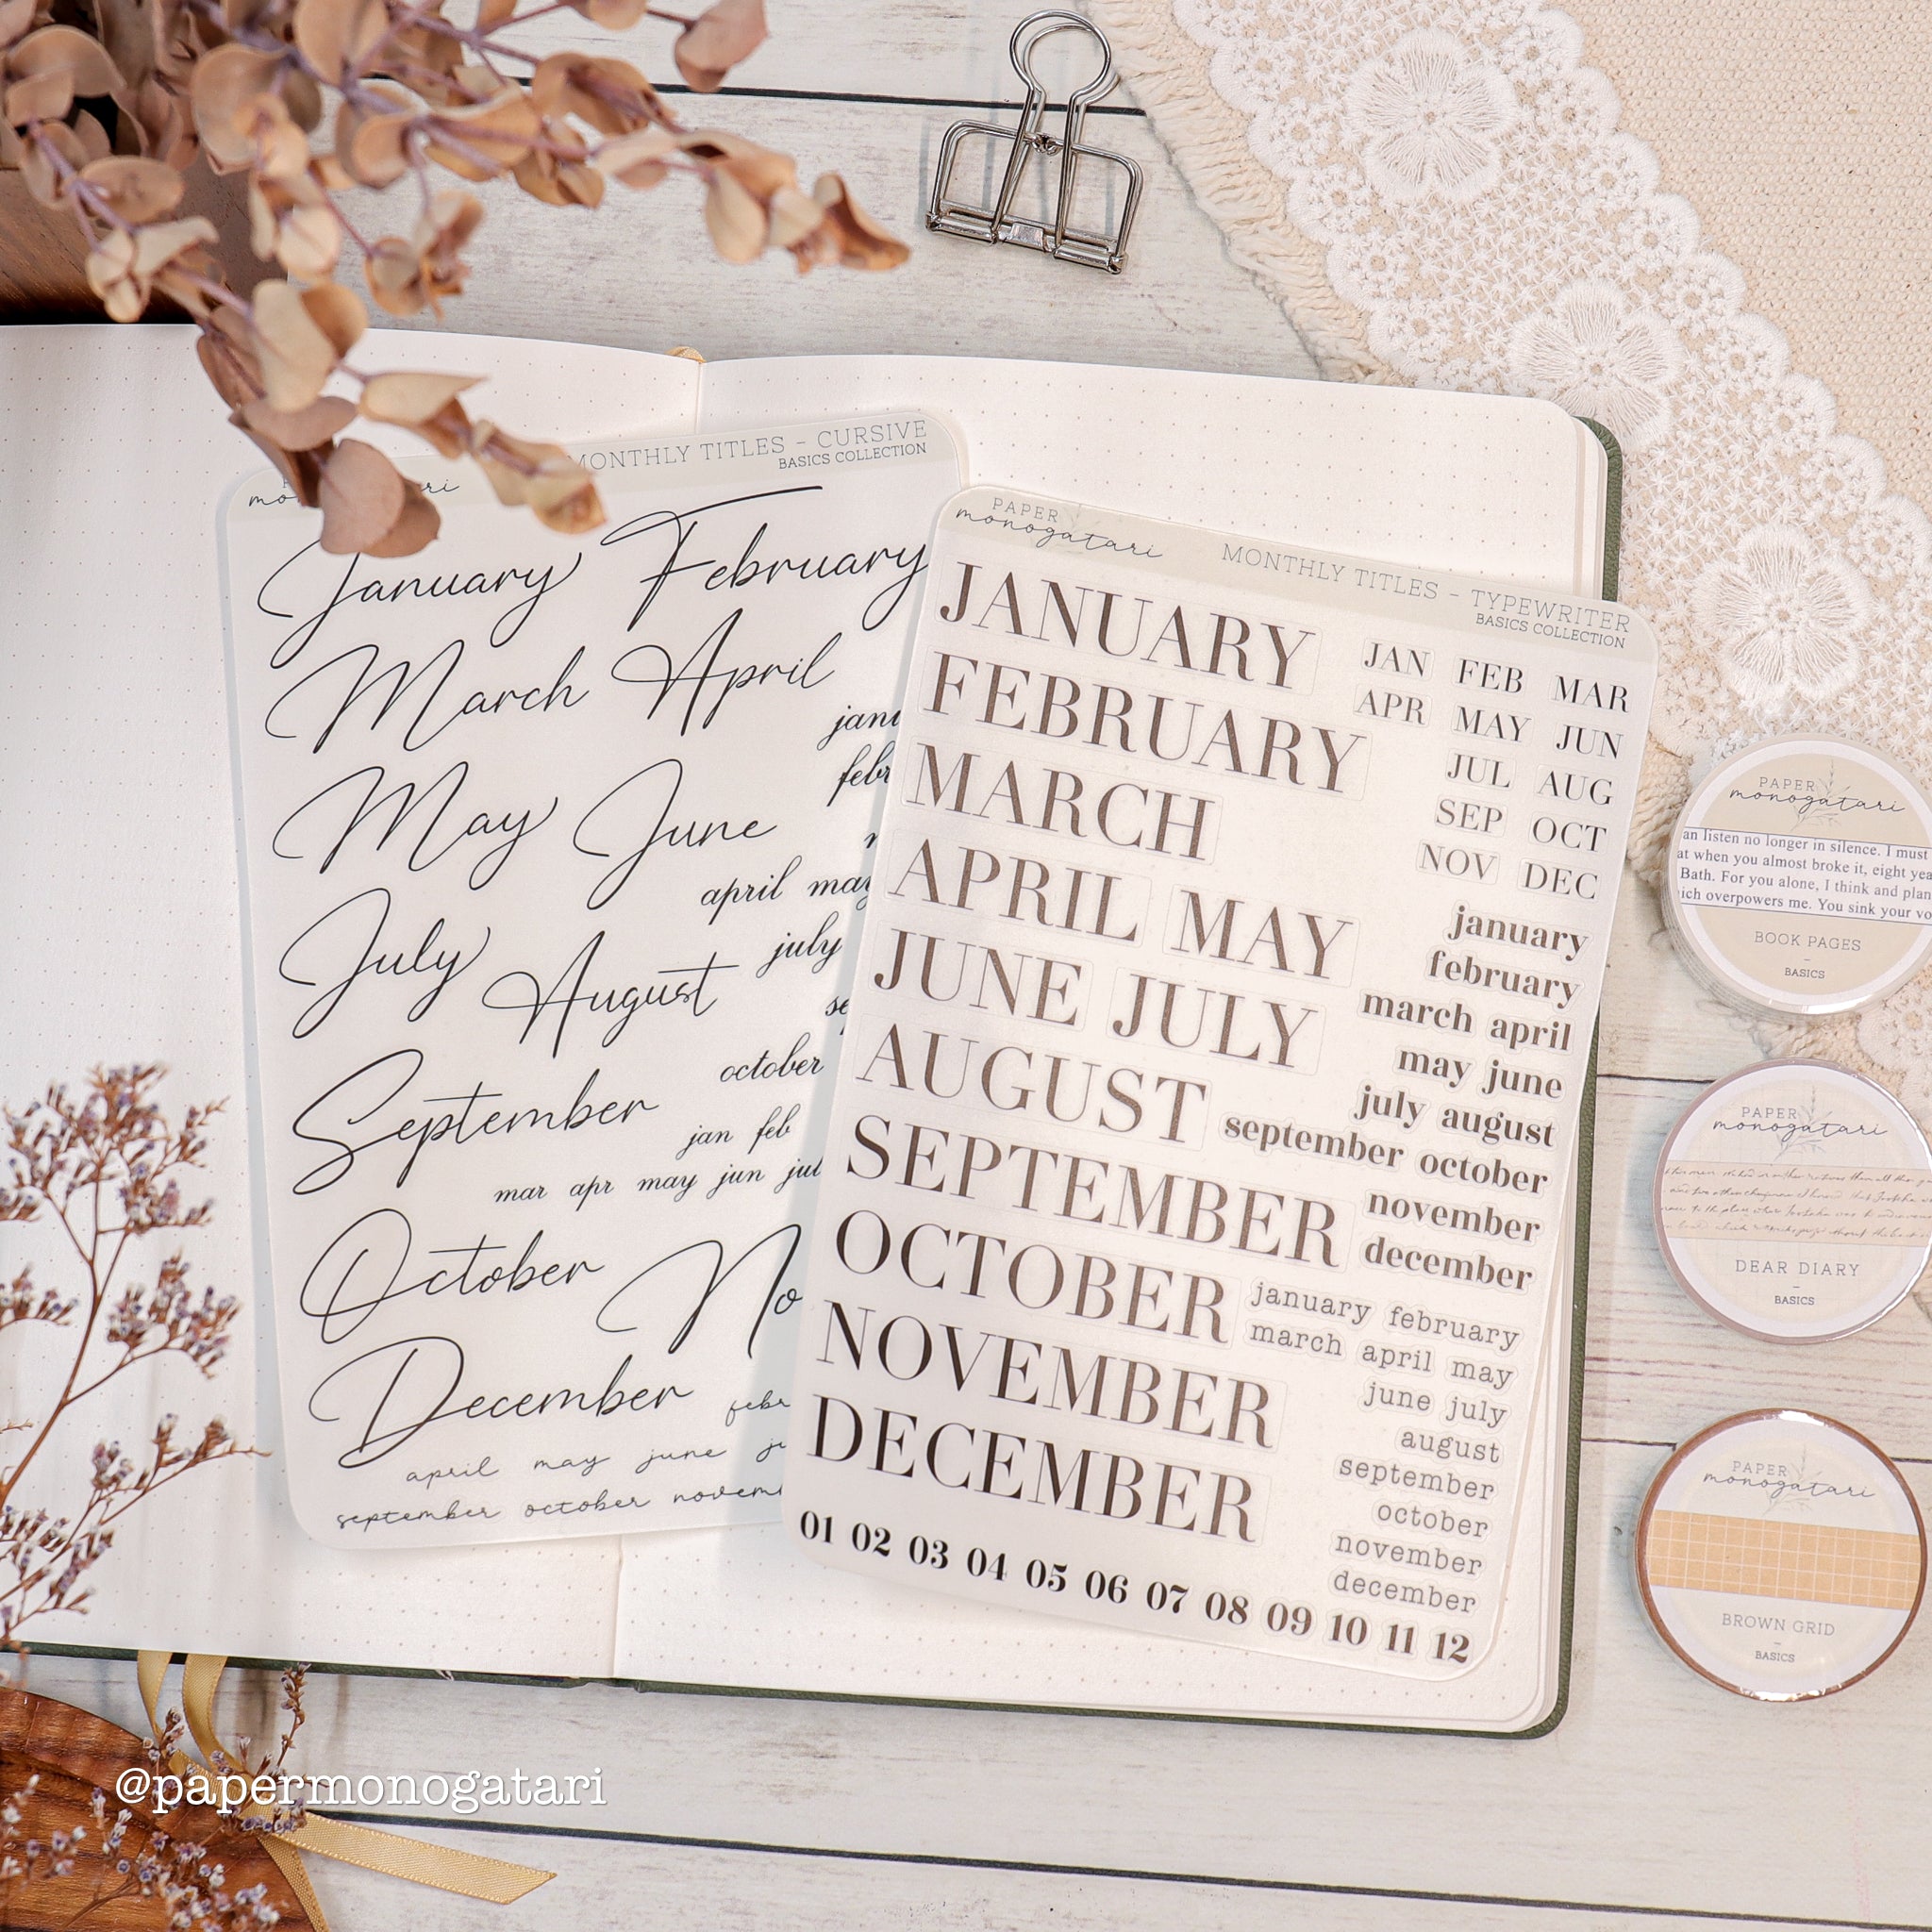 MONTHLY TITLES - CURSIVE
BASICS COLLECTION
January February
March April
May June
april may
july
July
August
october
September
jan feb
mar apr may jun jul
October
December
april may june
september october
PAPER
monogatari
MONTHLY TITLES - TYPEWRITER
BASICS COLLECTION
JANUARY
FEBRUARY
MARCH
APRIL MAY
JUNE JULY
AUGUST
SEPTEMBER
OCTOBER
NOVEMBER
DECEMBER
JAN FEB MAR
APR MAY JUN
JUL AUG
SEP OCT
NOV DEC
january
february
march april
may june
july august
september october
november
december
january february
march april may
june july
august
september
october
november
december
01 02 03 04 05 06 07 08 09 10 11 12
PAPER
monogatari
an listen no longer in silence. I must
at when you almost broke it, eight yea
Bath. For you alone, I think and plan
ich overpowers me. You sink your vo
BOOK PAGES
-
BASICS
PAPER
monogatari
DEAR DIARY
-
BASICS
PAPER
monogatari
BROWN GRID
-
BASICS
@papermonogatari